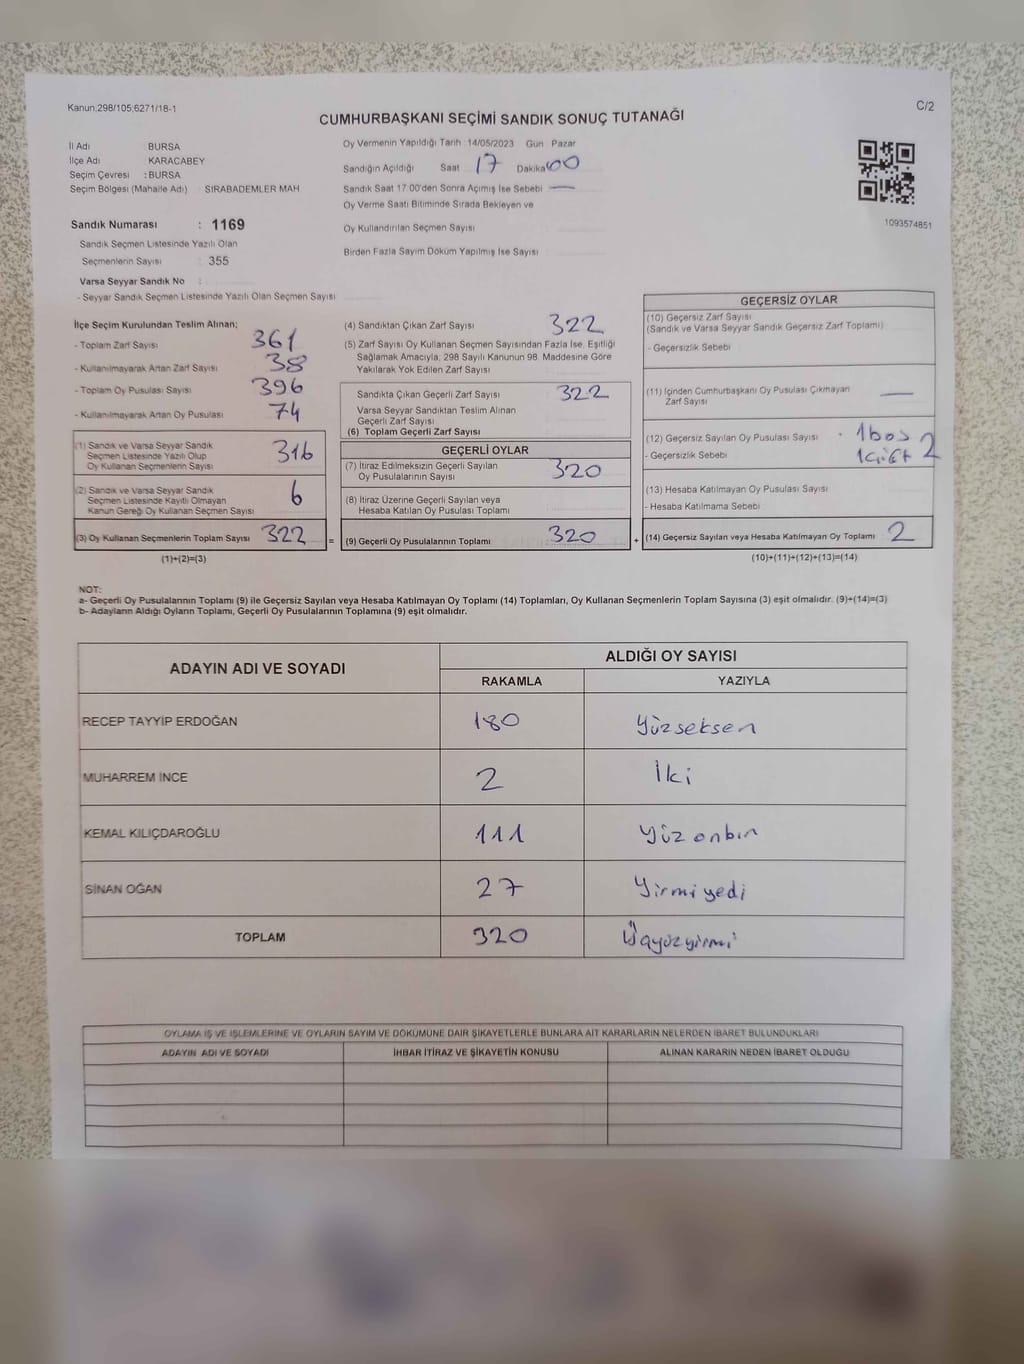 Kanun:298/105,6271/18-1
C/2
CUMHURBAŞKANI SEÇİMİ SANDIK SONUÇ TUTANAĞI
İl Adı BURSA
İlçe Adı KARACABEY
Seçim Çevresi : BURSA
Seçim Bölgesi (Mahalle Adı) SIRABADEMLER MAH
Sandık Numarası : 1169
Sandık Seçmen Listesinde Yazılı Olan
Seçmenlerin Sayısı 355
Varsa Seyyar Sandık No :
- Seyyar Sandık Seçmen Listesinde Yazılı Olan Seçmen Sayısı
Oy Vermenin Yapıldığı Tarih 14/05/2023 Gün Pazar
Sandığın Açıldığı Saat 17 Dakika 00
Sandık Saat 17.00'den Sonra Açılmış İse Sebebi —
Oy Verme Saati Bitiminde Sırada Bekleyen ve
Oy Kullandırılan Seçmen Sayısı
Birden Fazla Sayım Döküm Yapılmış İse Sayısı
1093574851
İlçe Seçim Kurulundan Teslim Alınan;
- Toplam Zarf Sayısı 361
- Kullanılmayarak Artan Zarf Sayısı 38
- Toplam Oy Pusulası Sayısı 396
- Kullanılmayarak Artan Oy Pusulası 74
(1) Sandık ve Varsa Seyyar Sandık
Seçmen Listesinde Yazılı Olup
Oy Kullanan Seçmenlerin Sayısı 316
(2) Sandık ve Varsa Seyyar Sandık
Seçmen Listesinde Kayıtlı Olmayan
Kanun Gereği Oy Kullanan Seçmen Sayısı 6
(3) Oy Kullanan Seçmenlerin Toplam Sayısı 322
(1)+(2)=(3)
(4) Sandıktan Çıkan Zarf Sayısı 322
(5) Zarf Sayısı Oy Kullanan Seçmen Sayısından Fazla İse, Eşitliği
Sağlamak Amacıyla, 298 Sayılı Kanunun 98. Maddesine Göre
Yakılarak Yok Edilen Zarf Sayısı
Sandıkta Çıkan Geçerli Zarf Sayısı 322
Varsa Seyyar Sandıktan Teslim Alınan
Geçerli Zarf Sayısı
(6) Toplam Geçerli Zarf Sayısı
GEÇERLİ OYLAR
(7) İtiraz Edilmeksizin Geçerli Sayılan
Oy Pusulalarının Sayısı 320
(8) İtiraz Üzerine Geçerli Sayılan veya
Hesaba Katılan Oy Pusulası Toplamı
= (9) Geçerli Oy Pusulalarının Toplamı 320
GEÇERSİZ OYLAR
(10) Geçersiz Zarf Sayısı
(Sandık ve Varsa Seyyar Sandık Geçersiz Zarf Toplamı)
- Geçersizlik Sebebi
(11) İçinden Cumhurbaşkanı Oy Pusulası Çıkmayan
Zarf Sayısı —
(12) Geçersiz Sayılan Oy Pusulası Sayısı 1 boş 2
- Geçersizlik Sebebi 1 çift
(13) Hesaba Katılmayan Oy Pusulası Sayısı
- Hesaba Katılmama Sebebi
+ (14) Geçersiz Sayılan veya Hesaba Katılmayan Oy Toplamı 2
(10)+(11)+(12)+(13)=(14)
NOT:
a- Geçerli Oy Pusulalarının Toplamı (9) ile Geçersiz Sayılan veya Hesaba Katılmayan Oy Toplamı (14) Toplamları, Oy Kullanan Seçmenlerin Toplam Sayısına (3) eşit olmalıdır. (9)+(14)=(3)
b- Adayların Aldığı Oyların Toplamı, Geçerli Oy Pusulalarının Toplamına (9) eşit olmalıdır.
ADAYIN ADI VE SOYADI
ALDIĞI OY SAYISI
RAKAMLA YAZIYLA
RECEP TAYYİP ERDOĞAN 180 Yüzseksen
MUHARREM İNCE 2 İki
KEMAL KILIÇDAROĞLU 111 Yüz onbir
SİNAN OĞAN 27 Yirmiyedi
TOPLAM 320 Üçyüzyirmi
OYLAMA İŞ VE İŞLEMLERİNE VE OYLARIN SAYIM VE DÖKÜMÜNE DAİR ŞİKAYETLERLE BUNLARA AİT KARARLARIN NELERDEN İBARET BULUNDUKLARI
ADAYIN ADI VE SOYADI İHBAR İTİRAZ VE ŞİKAYETİN KONUSU ALINAN KARARIN NEDEN İBARET OLDUĞU